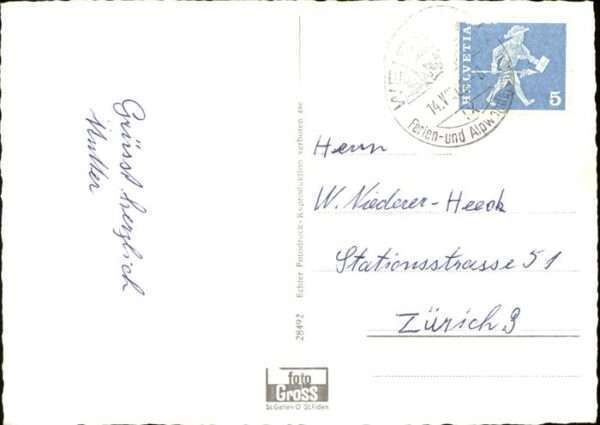 Grüsst herzlich
Mutter
28492 Echter Photodruck-Reproduktion verboten
foto
Gross
St.Gallen O St.Fiden
HELVETIA
5
Ferien- und
Herrn
W. Niederer-Heeck
Stationsstrasse 51
Zürich 3